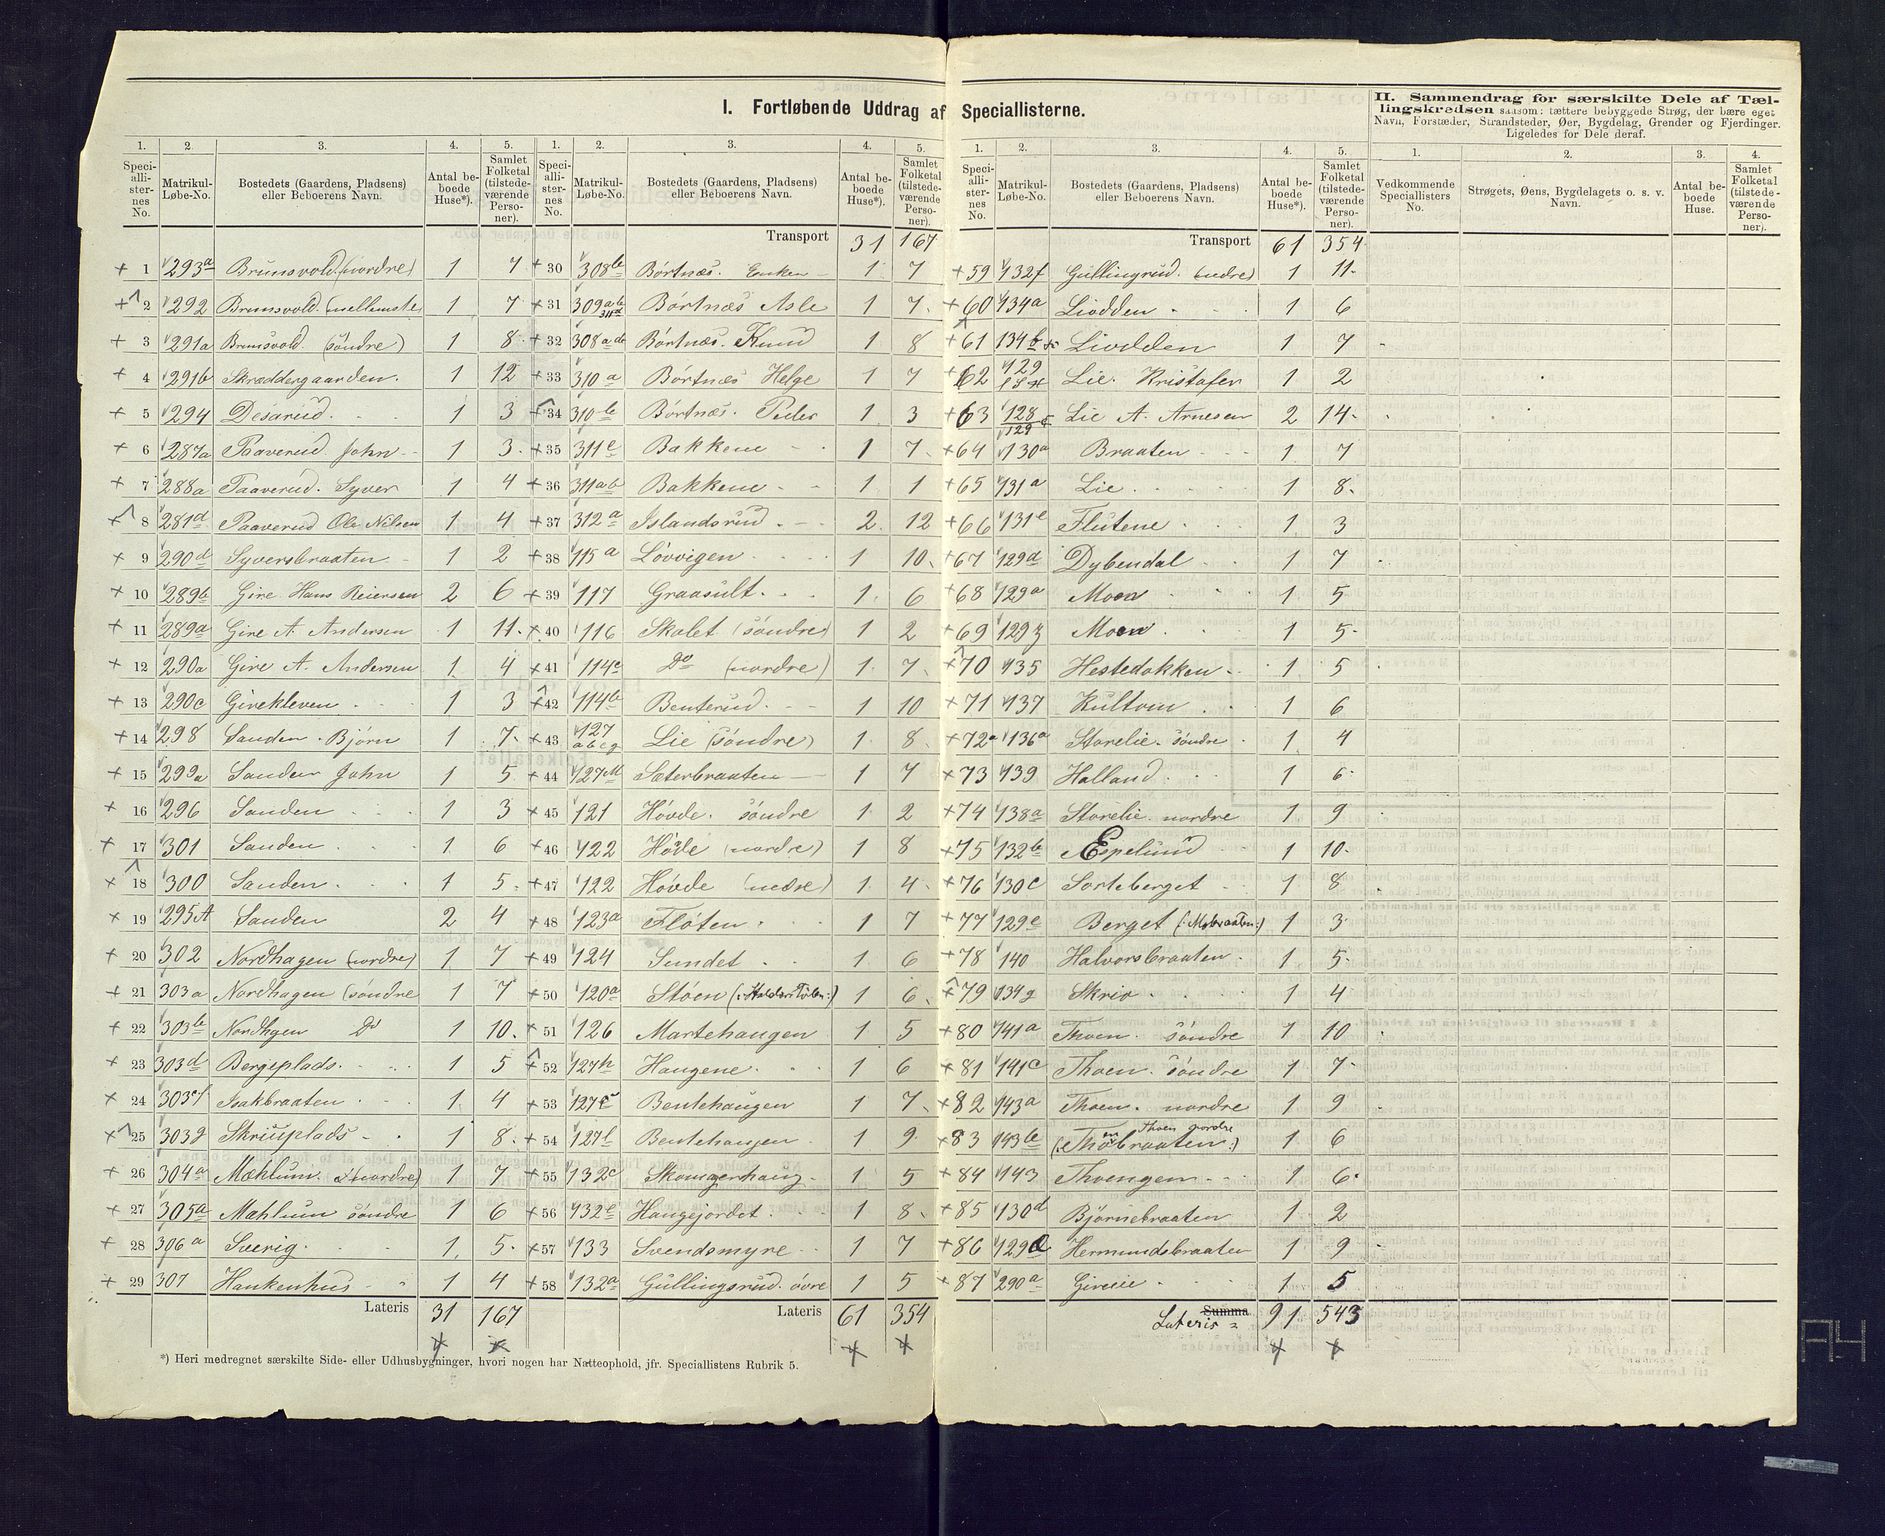 I. Fortløbende Uddrag af Speciallisterne.
II. Sammendrag for særskilte Dele af Tællingskredsen saasom: tættere bebyggede Strøg, der bære eget
Navn, Forstæder, Strandsteder, Øer, Bygdelag, Grender og Fjerdinger.
Ligeledes for Dele deraf.
1. 2. 3. 4. 5.
Speciallisternes No. Matrikul-Løbe-No. Bostedets (Gaardens, Pladsens) eller Beboerens Navn. Antal beboede Huse*). Samlet Folketal (tilstedeværende Personer).
+ 1 293a Brunsvold (nordre) 1 7
+ 2 292 Brunsvold (mellemste 1 7
+ 3 291a Brunsvold (søndre) 1 8
+ 4 291b Skræddergaarden. 1 12
+ 5 294 Desarud 1 3
+ 6 287a Paaverud John 1 3
+ 7 288a Paaverud. Syver 1 4
+ 8 281d Paaverud Ole Nilsen 1 4
+ 9 290d Syversbraaten 1 2
+ 10 289b Gire Hans Reiersen 2 6
+ 11 289a Gire A. Andersen 1 11
+ 12 290a Gire A. Andersen 1 4
+ 13 290c Girekleven 1 3
+ 14 298 Sanden. Bjørn 1 7
+ 15 299a Sanden John 1 5
+ 16 296 Sanden 1 3
+ 17 301 Sanden 1 6
+ 18 300 Sanden 1 5
+ 19 295A Sanden 2 4
+ 20 302 Nordhagen (nordre) 1 7
+ 21 303a Nordhagen (søndre 1 7
+ 22 303b Nordhgen Do 1 10
+ 23 303d Bergeplads 1 5
+ 24 303f Isakbraaten 1 4
+ 25 303g Skriuplads 1 8
+ 26 304a Mæhlum. (nordre) 1 7
+ 27 305a Mæhlum søndre 1 6
+ 28 306a Sverig 1 5
+ 29 307 Hankenhus 1 4
Lateris 31 167
1. 2. 3. 4. 5.
Speciallisternes No. Matrikul-Løbe-No. Bostedets (Gaardens, Pladsens) eller Beboerens Navn. Antal beboede Huse*). Samlet Folketal (tilstedeværende Personer).
Transport 31 167
+ 30 308b Børtnæs. Enken 1 7
+ 31 309ab 311d Børtnæs Asle 1 7
+ 32 308a Børtnæs. Knud 1 8
+ 33 310a Børtnæs Helge 1 7
+ 34 310b Børtnæs. Peder 1 3
+ 35 311e Bakkene 1 7
+ 36 311ab Bakkene 1 1
+ 37 312a Islandsrud 2 12
+ 38 115a Løvvigen 1 10
+ 39 117 Graasult 1 6
+ 40 116 Skalet (søndre) 1 2
+ 41 114c Do (nordre) 1 7
+ 42 114b Benterud 1 10
+ 43 127 abcg Lie (søndre) 1 8
+ 44 127M Sæterbraaten 1 7
+ 45 121 Høvde. søndre 1 2
+ 46 122 Høvde (nordre) 1 8
+ 47 122 Høvde (nedre) 1 4
+ 48 123a Fløten 1 7
+ 49 124 Sundet 1 6
+ 50 120a Støen 1 6
+ 51 126 Martehaugen 1 5
+ 52 127h Haugene 1 6
+ 53 127 Bentehaugen 1 7
+ 54 127l Bentehaugen 1 9
+ 55 132c Skomagerhaug 1 5
+ 56 132e Haugejordet 1 8
+ 57 133 Svendsmyre 1 7
+ 58 132a Gullingsrud. øvre 1 5
Lateris 61 354
1. 2. 3. 4. 5.
Speciallisternes No. Matrikul-Løbe-No. Bostedets (Gaardens, Pladsens) eller Beboerens Navn. Antal beboede Huse*). Samlet Folketal (tilstedeværende Personer).
Transport 61 354
+59 132f Gullingrud. (nedre) 1 11
+60 134a Liodden 1 6
+61 134b Liodden 1 7
+62 129 Lie. Kristofer 1 2
+63 128 129 Lie A. Arnesen 2 14
+64 130a Braaten 1 7
+65 131a Lie 1 8
+66 131e Flutene 1 3
+67 129d Dybendal 1 7
+68 129a Moen 1 5
+69 129z Moen 1 5
+70 135 Hestedokken 1 5
+71 137 Kultom 1 6
+72a 136a Storelie. søndre 1 4
+73 139 Halland 1 6
+74 138a Storelie nordre 1 9
+75 132b Espelund 1 10
+76 130c Sorteberget 1 8
+77 129e Berget (:Mobraaten:) 1 3
+78 140 Halvorsbraaten 1 5
+79 134g Skrio 1 4
+80 141a Thoen. søndre 1 10
+81 141c Thoen. søndre 1 7
+82 143a Thoen. nordre 1 9
Thoen nordre
+83 143b (:Thoenbraaten:) 1 6
+84 143 Thoengem 1 6
+85 130d Bjørnebraaten 1 2
+86 129 Hermundsbraaten 1 9
+87 290a Gireeie 1 5
Summa
Lateris 91 543
1. 2. 3. 4.
Vedkommende Speciallisters No. Strøgets, Øens, Bygdelagets o. s. v. Navn. Antal beboede Huse. Samlet Folketal (tilstedeværende Personer).
*) Heri medregnet særskilte Side- eller Udhusbygninger, hvori nogen har Natteophold, jfr. Speciallistens Rubrik 5.
A4